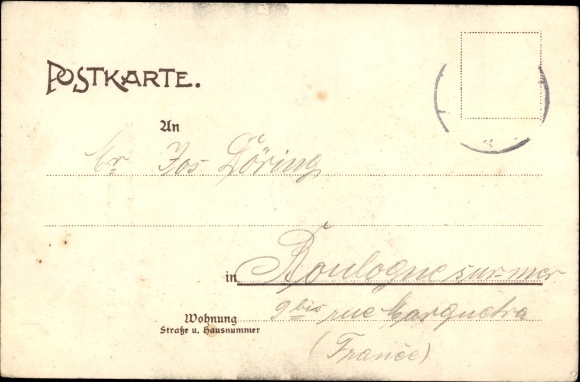 POSTKARTE.
An
Jos. Döring
in Boulogne sur-mer
Wohnung 9 bis rue
Straße u. Hausnummer
(France)